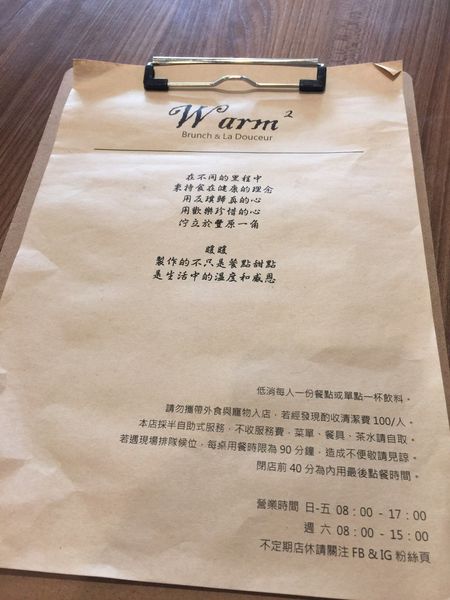 Warm²
Brunch & La Douceur
在不同的里程中
秉持食在健康的理念
用反璞歸真的心
用歡樂珍惜的心
佇立於豐原一角
暖暖
製作的不只是餐點甜點
是生活中的溫度和感恩
低消每人一份餐點或單點一杯飲料。
請勿攜帶外食與寵物入店，若經發現酌收清潔費 100/人。
本店採半自助式服務，不收服務費，菜單、餐具、茶水請自取。
若遇現場排隊候位，每桌用餐時限為 90 分鐘，造成不便敬請見諒。
閉店前 40 分為內用最後點餐時間。
營業時間 日-五 08：00 - 17：00
週 六 08：00 - 15：00
不定期店休請關注 FB & IG 粉絲頁